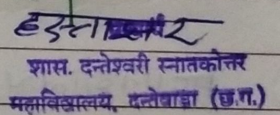 हस्ताक्षर
शास. दन्तेश्वरी स्नातकोत्तर
महाविद्यालय, दन्तेवाड़ा (छ.ग.)